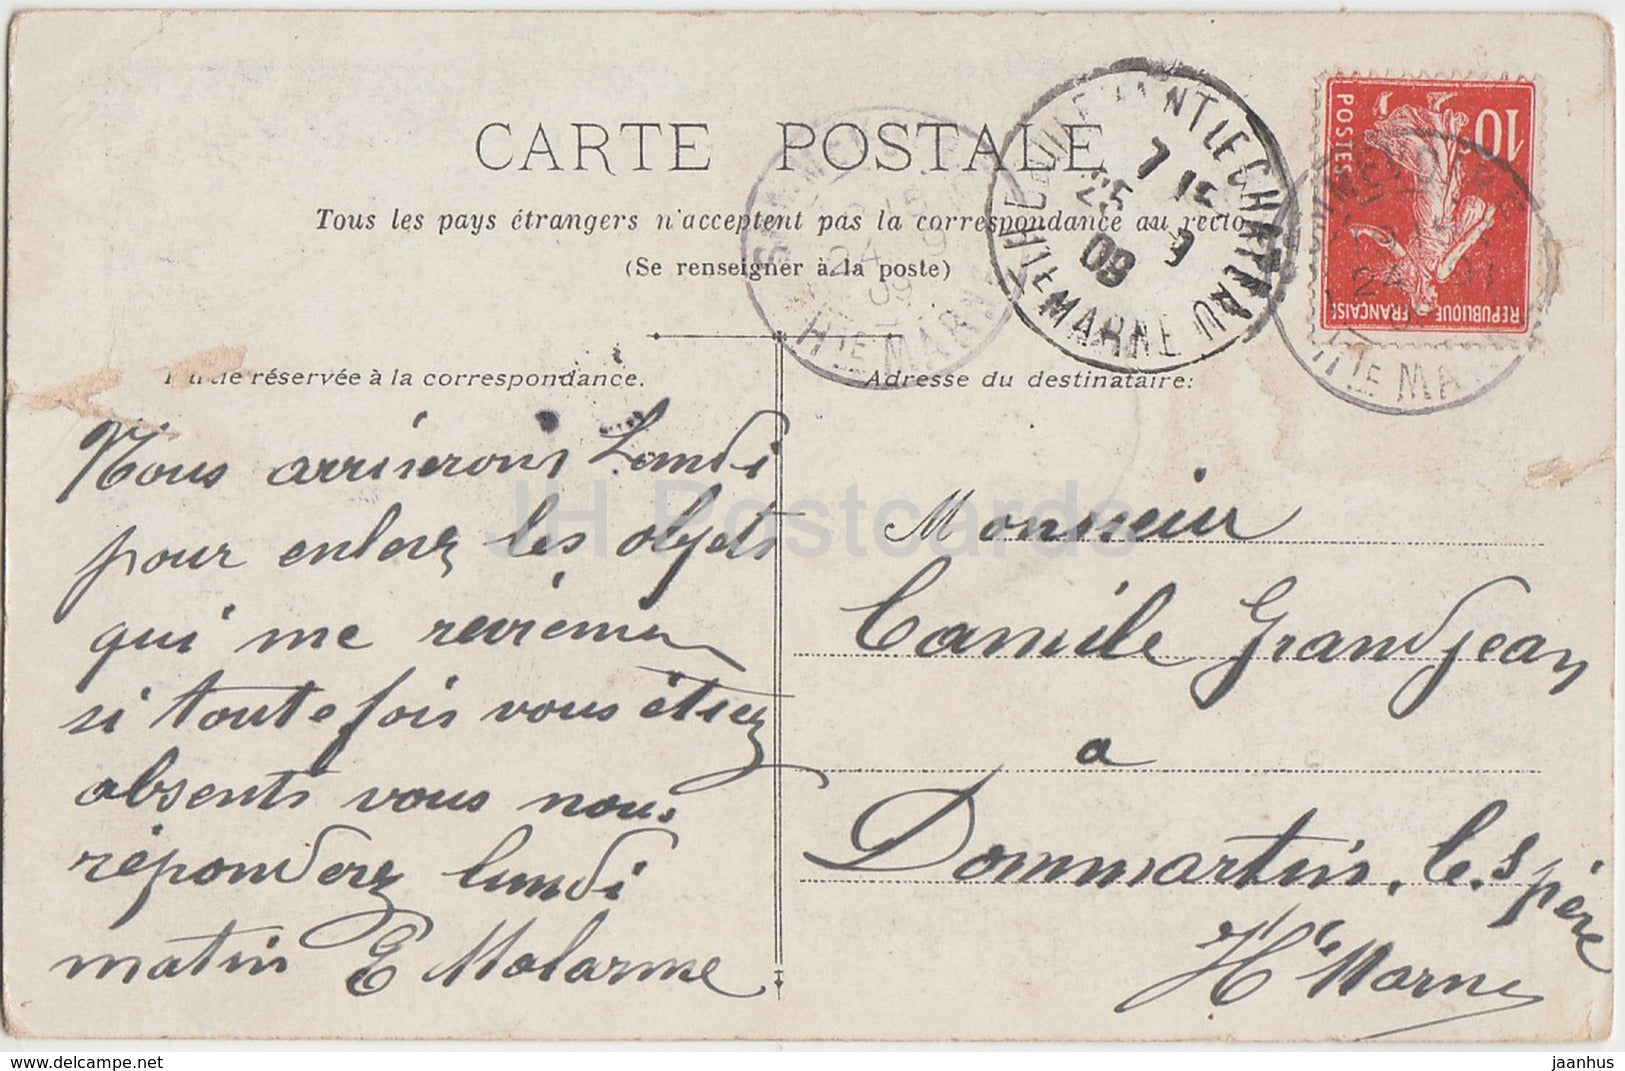 CARTE POSTALE
Tous les pays étrangers n'acceptent pas la correspondance au recto
(Se renseigner à la poste)
réservée à la correspondance.
Nous arriverons Lundi
pour enlever les objets
qui me reviennen
si toutefois vous étiez
absents vous nous
réponderez lundi
matin E Malarme
Adresse du destinataire:
Monsieur
Camille Grandjean
a
Dommartin. le. S père
Hte Marne
POSTES
10
REPUBLIQUE FRANÇAISE
7 15
25 9
09
HTE MARNE
24
09
HTE MARNE
19
24
HTE MA
JH Postcards
www.delcampe.net
jaanhus